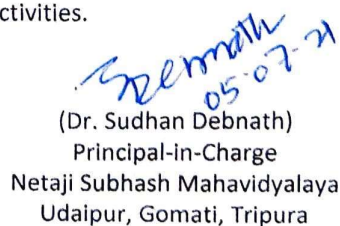 ctivities.
05-07-21
(Dr. Sudhan Debnath)
Principal-in-Charge
Netaji Subhash Mahavidyalaya
Udaipur, Gomati, Tripura